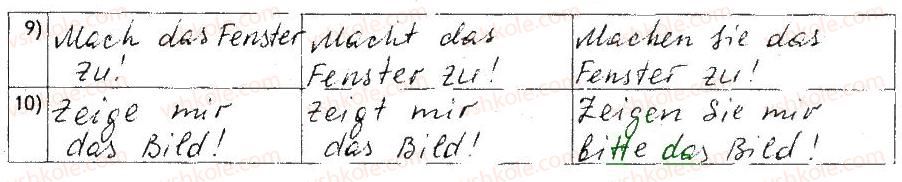 9) Mach das Fenster zu! Macht das Fenster zu! Machen Sie das Fenster zu!
10) Zeige mir das Bild! Zeigt mir das Bild! Zeigen Sie mir bitte das Bild!